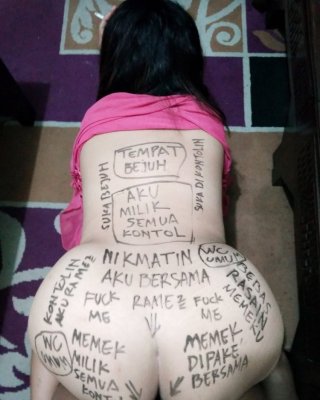 TEMPAT
BEJUH
SUKA BEJUH
SUKA DI KONTOLIN
AKU
MILIK
SEMUA
KONTOL
NIKMATIN
AKU BERSAMA
WC
UMUM
KONTOLIN
AKU RAME2
FUCK
ME
RAME2
FUCK
ME
MEMEK
WC
UMUM
MEMEK
MILIK
SEMUA
KONTOL
MEMEK
DIPAKE
BERSAMA